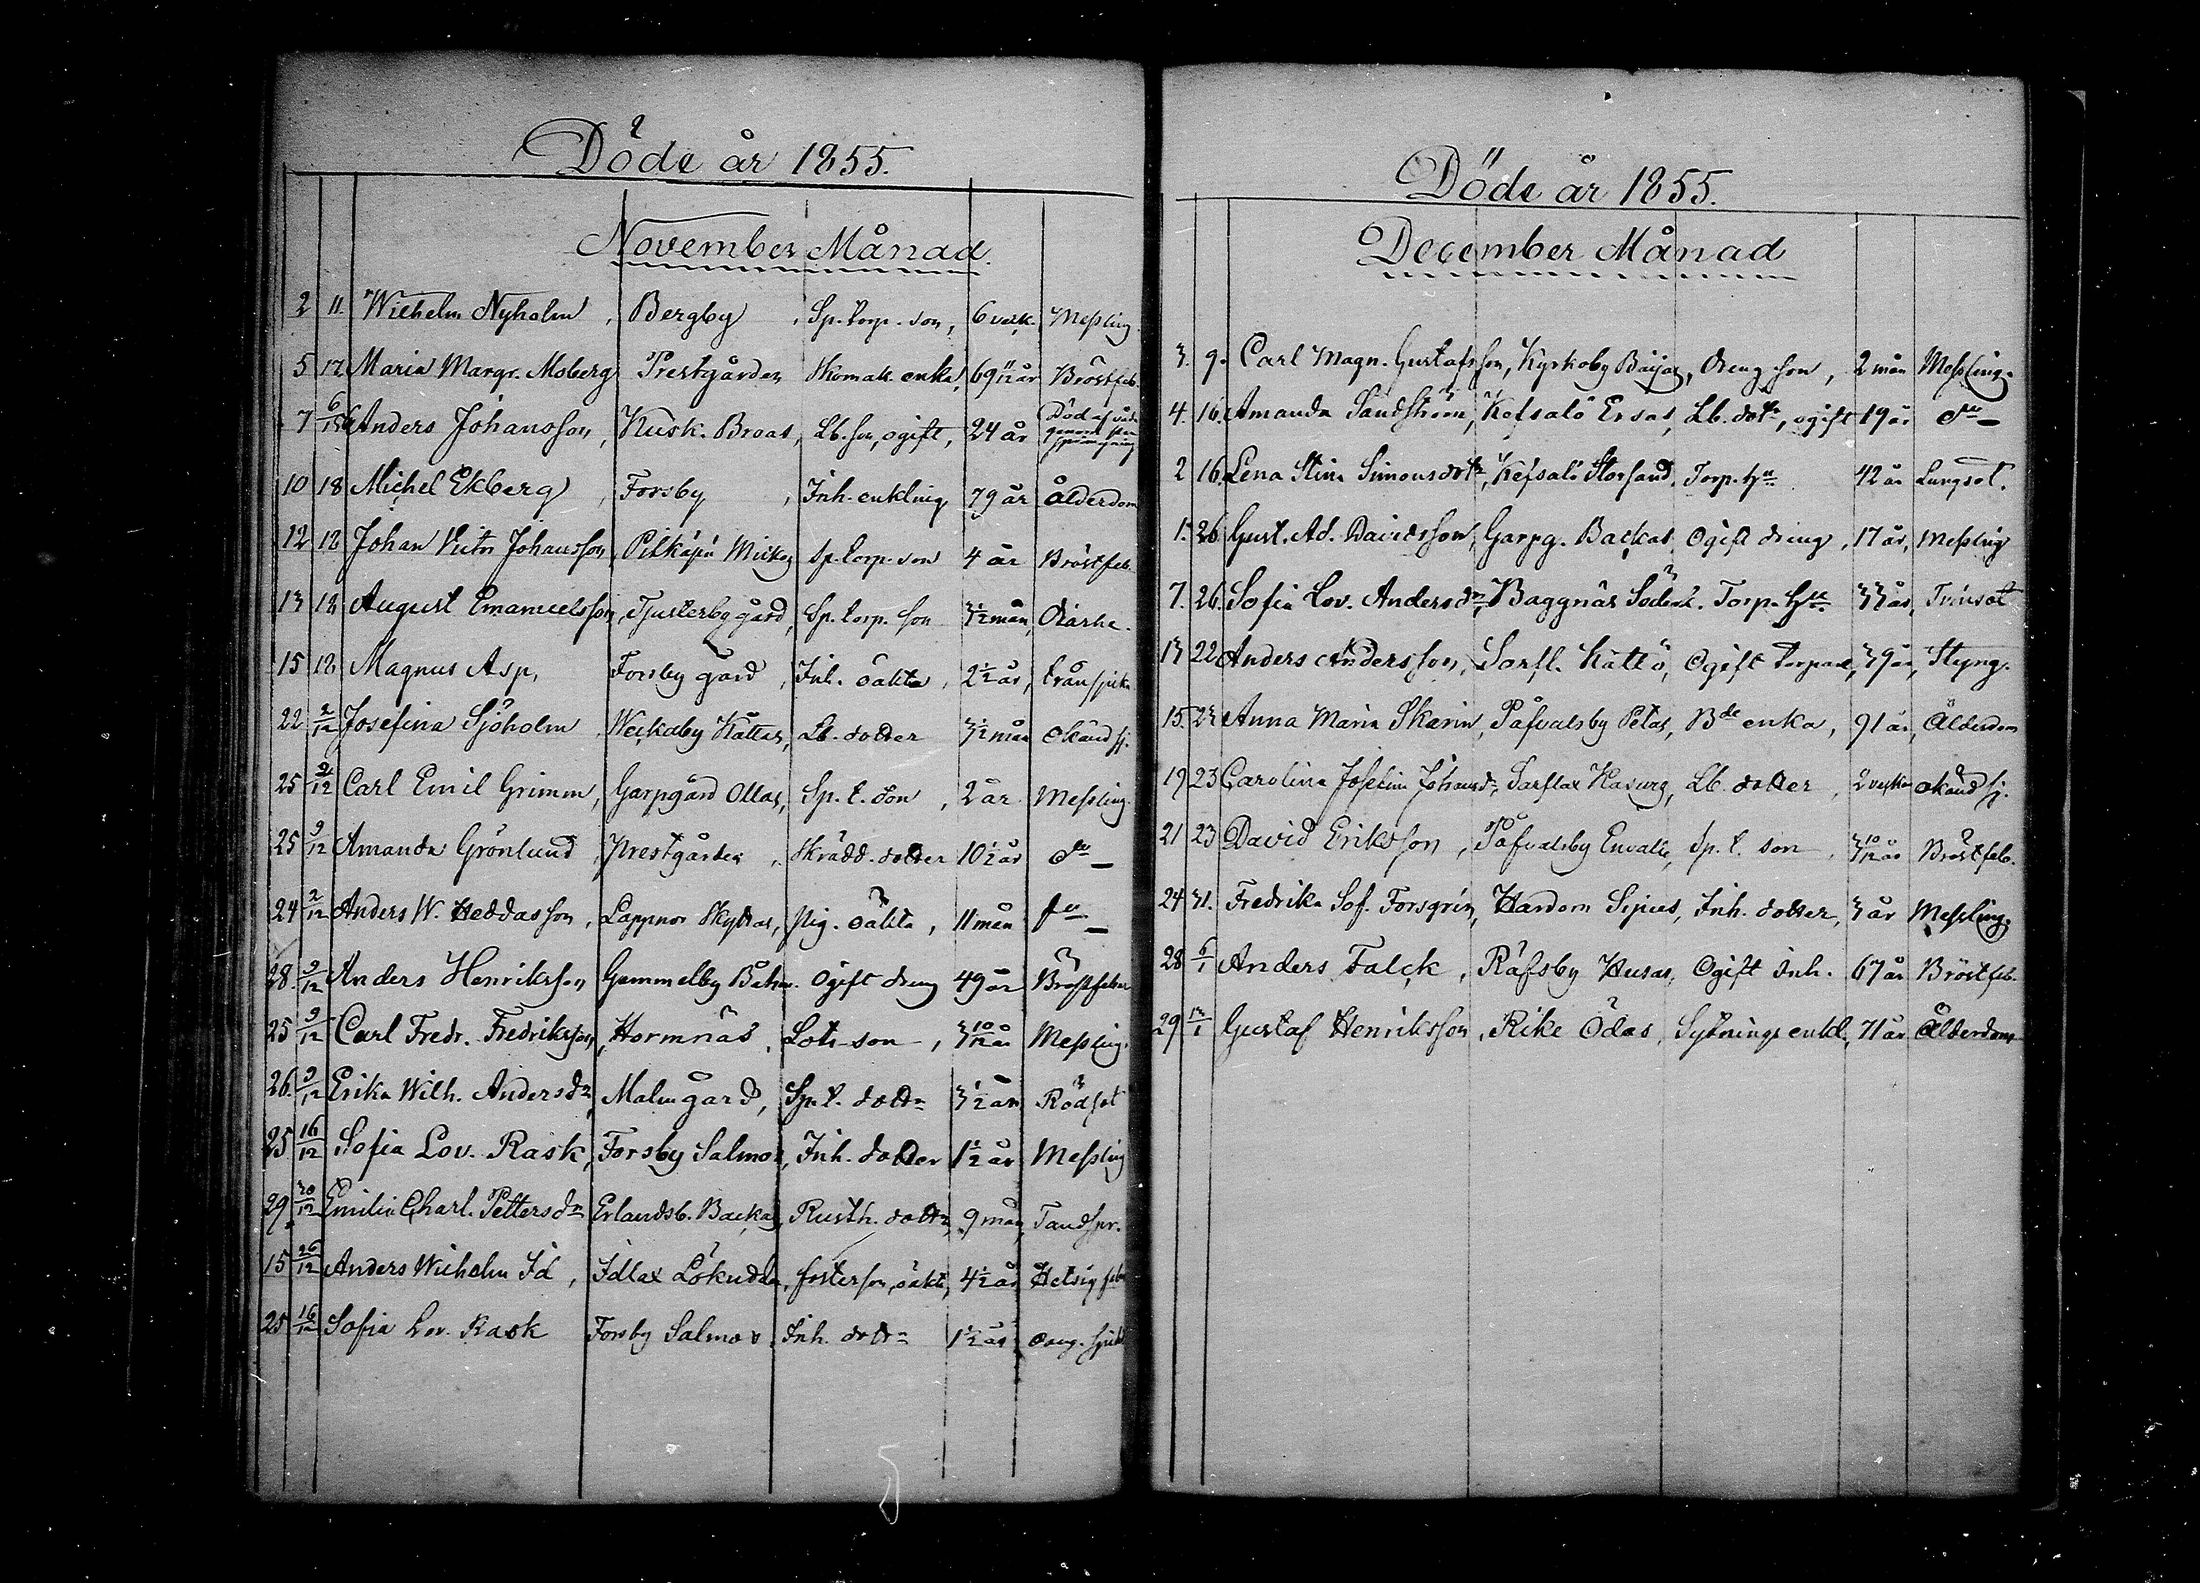 Döde år 1855.
November Månad.
2 11. Wilhelm Nyholm, Bergby, Sp. torp. son, 6 veck. Messling
5 12 Maria Margr. Moberg Prestgården Skomak. enka, 69 11/12 år Bröstfeb.
7 6/12 Anders Johansson, Kusk. Broas, Lb. son, ogift, 24 år Död af våda genom sten sprängning
10 18 Michel Ekberg, Forsby, Inh. enkling 79 år Ålderdom
12 18 Johan Victor Johansson, Pitkäpä Mickos Sp. torp. son 4 år Bröstfeb.
13 18 August Emanuelsson, Tjusterby gård, Sp. torp. son 3 1/2 mån, Diarhe.
15 18 Magnus Asp, Forsby gård, Inh. oäkta, 2 1/2 år, tränsjuka
22 2/12 Josefina Sjöholm Weckoby Kattas, Lb. dotter 3 1/2 mån okänd sj.
25 2/12 Carl Emil Grimm, Garpgård Ollas, Sp. t. son, 2 år Messling.
25 9/12 Amanda Grönlund, Prestgården, Skrädd. dotter 10 1/2 år do —
24 2/12 Anders W. Heddasson, Lappnor Skyttas, Pig. oäkta, 11 mån do —
28. 9/12 Anders Henriksson Gammelby Ogift dreng 49 år Bröstfeber
25 9/12 Carl Fredr. Fredriksson, Hormnäs, Lots son, 3 10/12 år Messling.
26. 9/12 Erika Wilh. Andersdr, Malmgård, Sp. t. dottr 3 1/2 år Rödsot
25 16/12 Sofia Lov. Rask, Forsby Salmos, Inh. dotter 1 1/2 år Messling
29. 30/12 Emilia Charl. Pettersdr Erlandsb. Backas, Rusth. dottr, 9 mån, Tandspr.
15 26/12 Anders Wilhelm Id, Idlax Lökudden, fosterson, oäkta, 4 1/2 år Hetsig feber
25 16/12 Sofia Lov. Rask Forsby Salmos, Inh. dottr 1 1/2 år
Döde år 1855.
December Månad
3. 9. Carl Magn. Gustafsson, Kyrkoby Böijas, dreng son, 2 mån Messling.
4. 16. Amanda Sandström, Kejsalö Ersas, Lb. dottr, ogift 19 år do —
2 16. Lena Stina Simonsdottr, Kejsalö Storsand, Torp. hu 42 år Lungsot.
1. 26 Gust. Ad. Davidsson, Garpg. Backas Ogift dreng, 17 år, Messling
7. 26. Sofia Lov. Andersdr, Baggnäs Torp. hu 33 år, Tvinsot
13 22 Anders Andersson, Sarfl. Kättö, Ogift torpare, 39 år, Styng.
15. 23 Anna Maria Skarin, Påfvalsby Petas, Bde enka, 91 år, Ålderdom
19 23 Carolina Josefina Johansdr, Sarflax Hasurg, Lb. dotter, 2 veckor okänd sj.
21 23 David Eriksson, Påfvalsby Envalls, Sp. t. son, 3 10/12 år Bröstfeb.
24 31. Fredrika Sof. Forsgrén, Hardom Sipus, Inh. dotter, 3 år Messling.
28 6/1 Anders Falck, Räfsby Husas, Ogift Inh. 67 år Bröstfeb.
29 13/1 Gustaf Henriksson, Rike Ödas, Sytnings enkl., 71 år Ålderdom
5